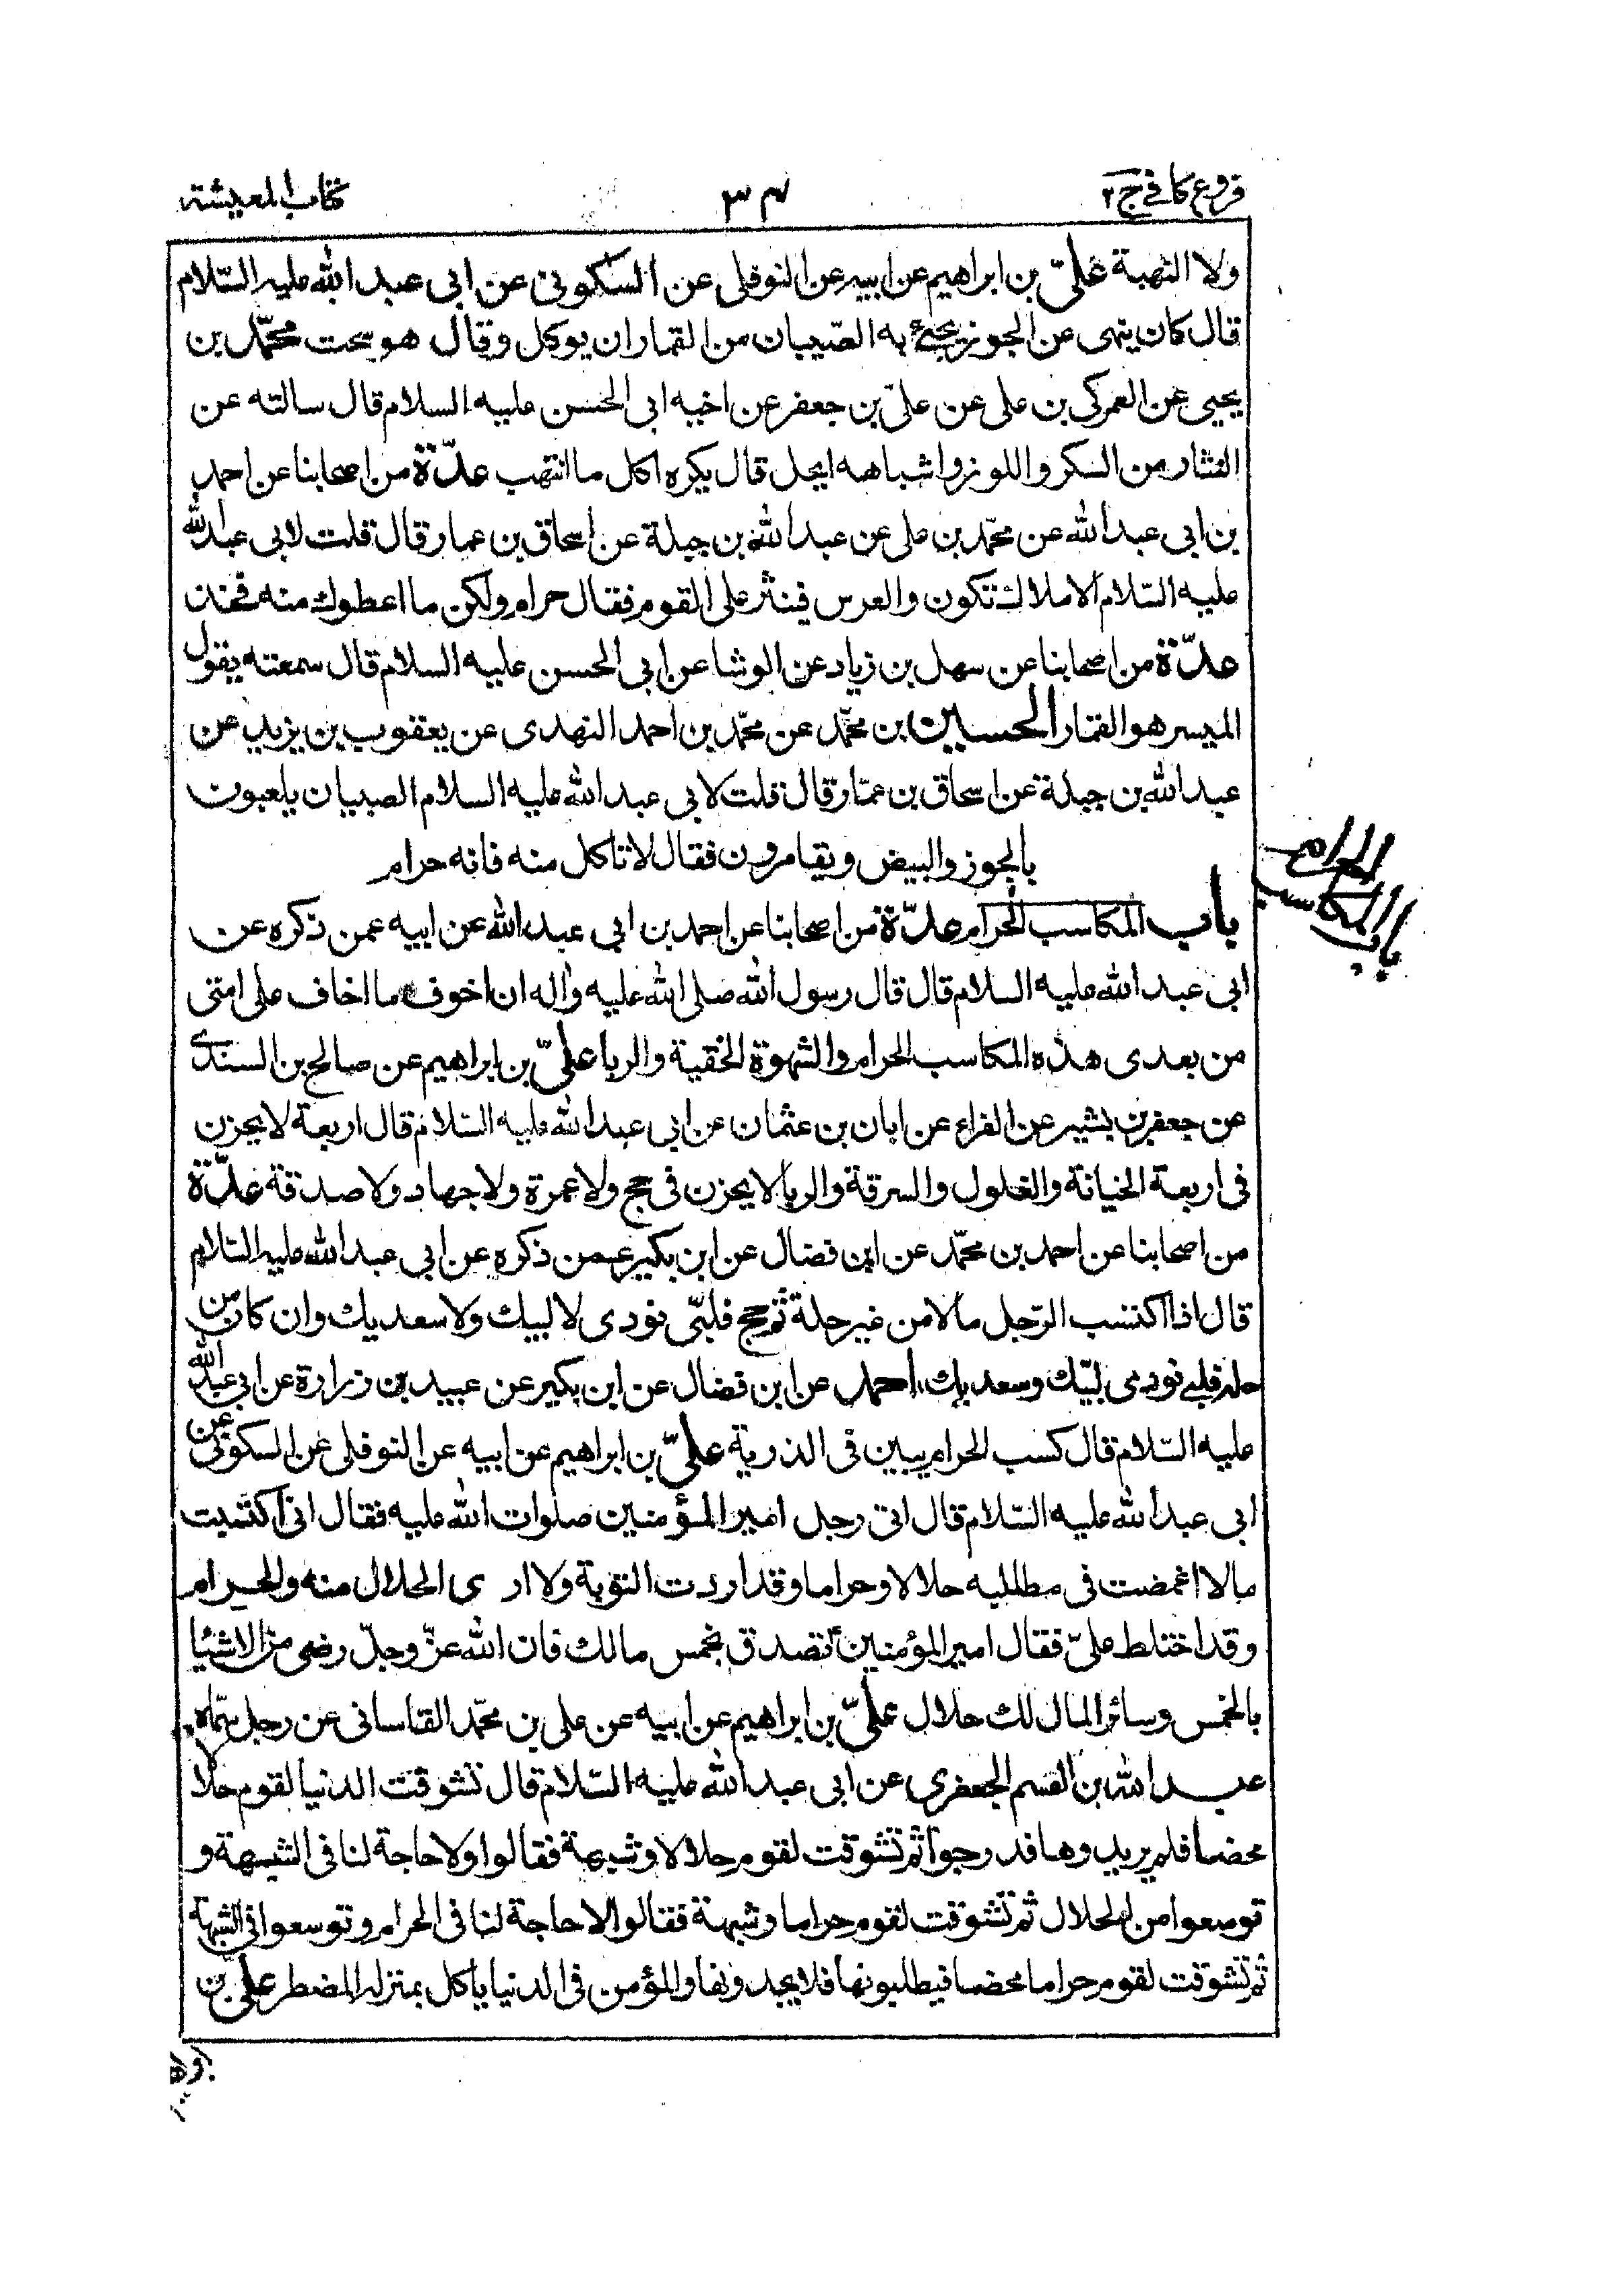 فروع كافي ج٢
٣٤
كتاب المعيشة
ولا النهبة علىّ بن ابراهيم عن ابيه عن النوفلى عن السكونى عن ابى عبد الله عليه السّلام
قال كان ينهى عن الجوز يجئ به الصّبيان من القمار ان يوكل وقال هو سحت محمّد بن
يحيى عن العمركى بن على عن علىّ بن جعفر عن اخيه ابى الحسن عليه السلام قال سالته عن
النثار من السكر واللوز واشباهه ايحل قال يكره اكل ما انتهب عدّة من اصحابنا عن احمد
بن ابى عبد الله عن محمّد بن على عن عبد الله بن جبلة عن اسحاق بن عمار قال قلت لابى عبد الله
عليه السّلام الاملاك تكون والعرس فينثر على القوم فقال حرام ولكن ما اعطوك منه فخذ
عدّة من اصحابنا عن سهل بن زياد عن الوشا عن ابى الحسن عليه السلام قال سمعته يقول
الميسر هو القمار الحسين بن محمّد عن محمّد بن احمد النهدى عن يعقوب بن يزيد عن
عبد الله بن جبلة عن اسحاق بن عمّار قال قلت لابى عبد الله عليه السلام الصبيان يلعبون
بالجوز والبيض ويقامرون فقال لا تاكل منه فانه حرام
باب المكاسب الحرام
باب المكاسب الحرام عدّة من اصحابنا عن احمد بن ابى عبد الله عن ابيه عمن ذكره عن
ابى عبد الله عليه السلام قال قال رسول الله صلى الله عليه واله ان اخوف ما اخاف على امتى
من بعدى هذه المكاسب الحرام والشهوة الخفية والربا علىّ بن ابراهيم عن صالح بن السندى
عن جعفر بن بشير عن الفراء عن ابان بن عثمان عن ابى عبد الله عليه السّلام قال اربعة لا يجزن
فى اربعة الخيانة والغلول والسرقة والربا لا يجزن فى حج ولا عمرة ولا جهاد ولا صدقة عدّة
من اصحابنا عن احمد بن محمّد عن ابن فضال عن ابن بكير عمن ذكره عن ابى عبد الله عليه السّلام
قال اذا اكتسب الرّجل مالا من غير حلة ثم حج فلبّى نودى لا لبيك ولا سعديك وان كان من
حله فلبى نودى لبّيك وسعديك احمد عن ابن فضال عن ابن بكير عن عبيد بن زرارة عن ابى عبد الله
عليه السّلام قال كسب الحرام يبين فى الذرية علىّ بن ابراهيم عن ابيه عن النوفلى عن السكونى عن
ابى عبد الله عليه السّلام قال اتى رجل امير المؤمنين صلوات الله عليه فقال انى اكتسبت
مالا اغمضت فى مطالبه حلالا وحراما وقد اردت التوبة ولا ارى الحلال منه والحرام
وقد اختلط علىّ فقال امير المؤمنين تصدق بخمس مالك فان الله عزّ وجلّ رضى من الاشيا
بالخمس وسائر المال لك حلال علىّ بن ابراهيم عن ابيه عن على بن محمّد القاسانى عن رجل سمّاه
عبد الله بن القسم الجعفرى عن ابى عبد الله عليه السّلام قال تشوقت الدنيا لقوم حلالا
محضا فلم يريدوها فدرجوا ثم تشوقت لقوم حلالا وشبهة فقالوا ولا حاجة لنا فى الشبهة و
توسعوا من الحلال ثم تشوقت لقوم حراما وشبهة فقالوا لا حاجة لنا فى الحرام وتوسعوا فى الشبهة
ثم تشوقت لقوم حراما محضا فيطلبونها فلا يجدونها والمؤمن فى الدنيا ياكل بمنزلة المضطر علىّ بن